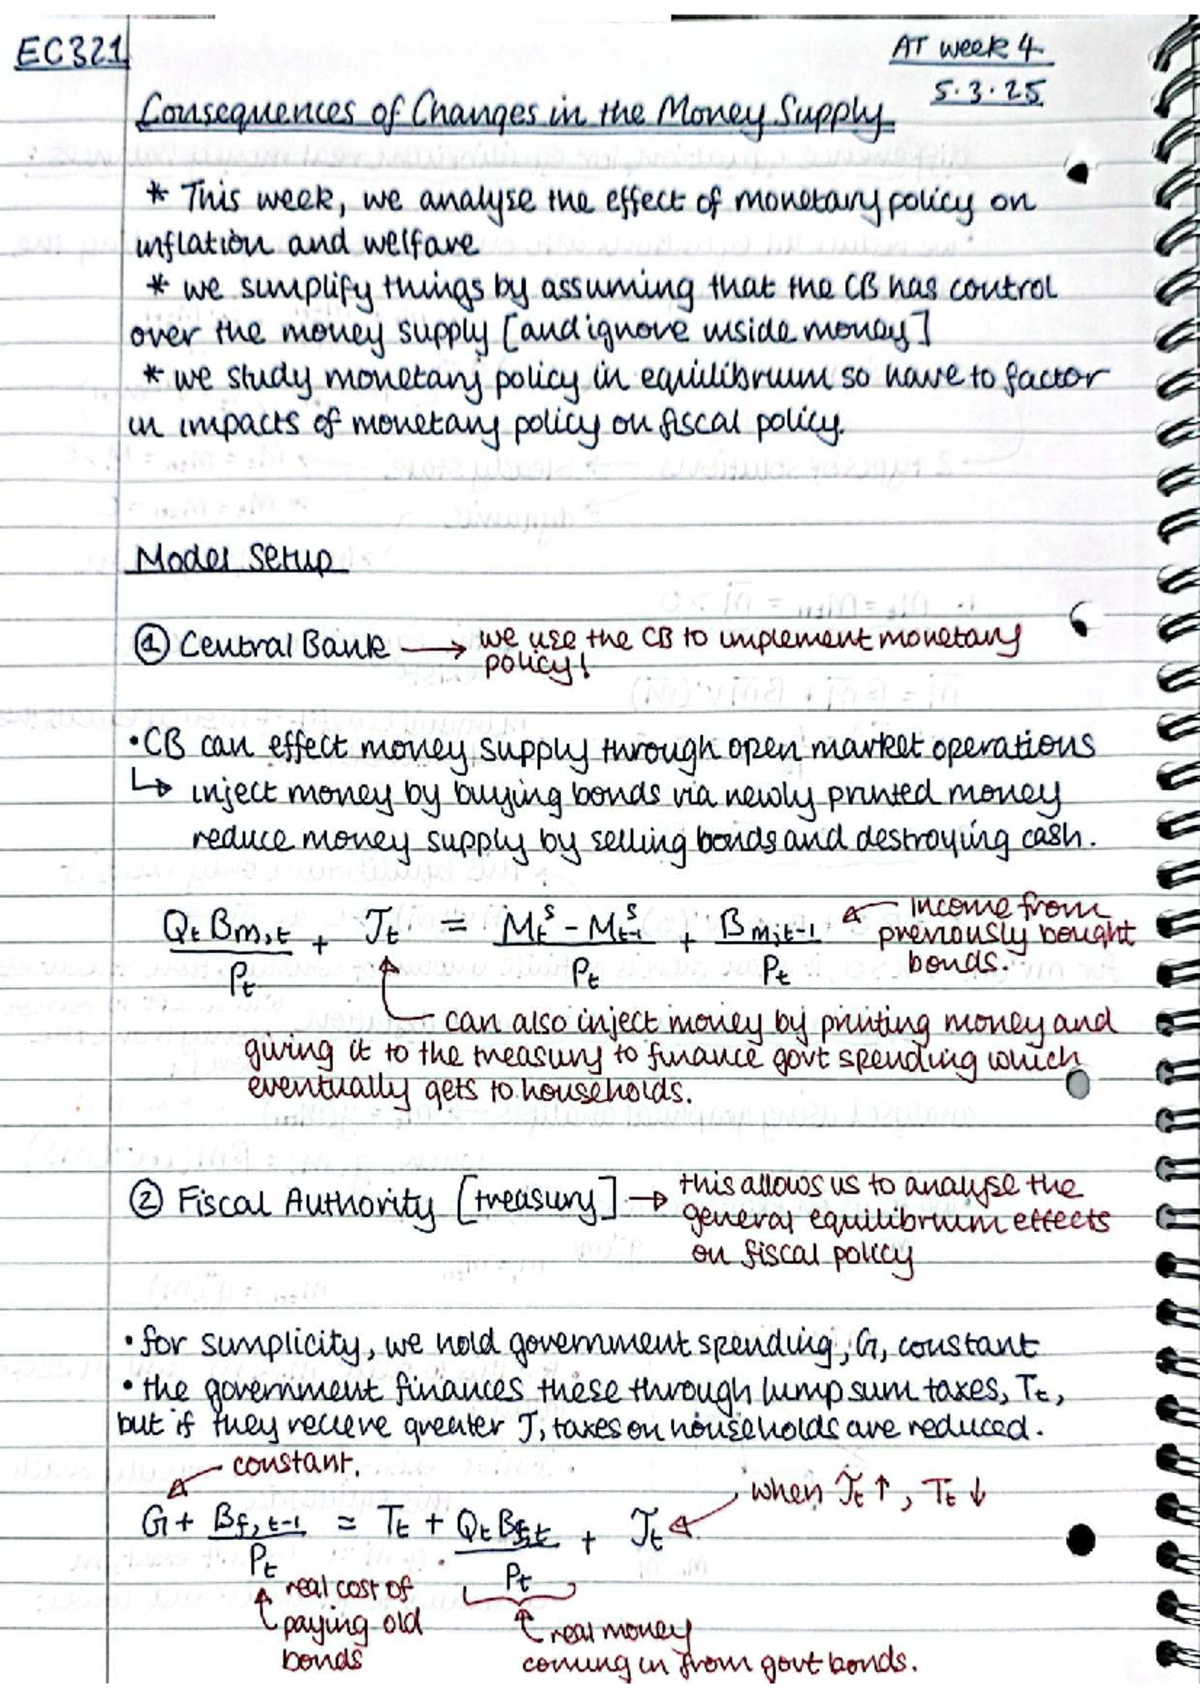 EC321
AT week 4
5.3.25
Consequences of Changes in the Money Supply
* This week, we analyse the effect of monetary policy on
inflation and welfare
* we simplify things by assuming that the CB has control
over the money supply [and ignore inside money]
* we study monetary policy in equilibrium so have to factor
in impacts of monetary policy on fiscal policy.
Model Setup
① Central Bank → we use the CB to implement monetary
policy!
• CB can effect money supply through open market operations
↳ inject money by buying bonds via newly printed money
reduce money supply by selling bonds and destroying cash.
Q_t B_{m,t}/P_t + J_t = (M_t^s - M_{t-1}^s)/P_t + B_{m,t-1}/P_t ← income from
previously bought
bonds.
can also inject money by printing money and
giving it to the treasury to finance govt spending which
eventually gets to households.
② Fiscal Authority [treasury] → this allows us to analyse the
general equilibrium effects
on fiscal policy
• for simplicity, we hold government spending, G, constant
• the government finances these through lump sum taxes, T_t,
but if they recieve greater J, taxes on households are reduced.
constant.
when J_t ↑, T_t ↓
G + B_{f,t-1}/P_t = T_t + Q_t B_{f,t}/P_t + J_t
real cost of
paying old
bonds
real money
coming in from govt bonds.